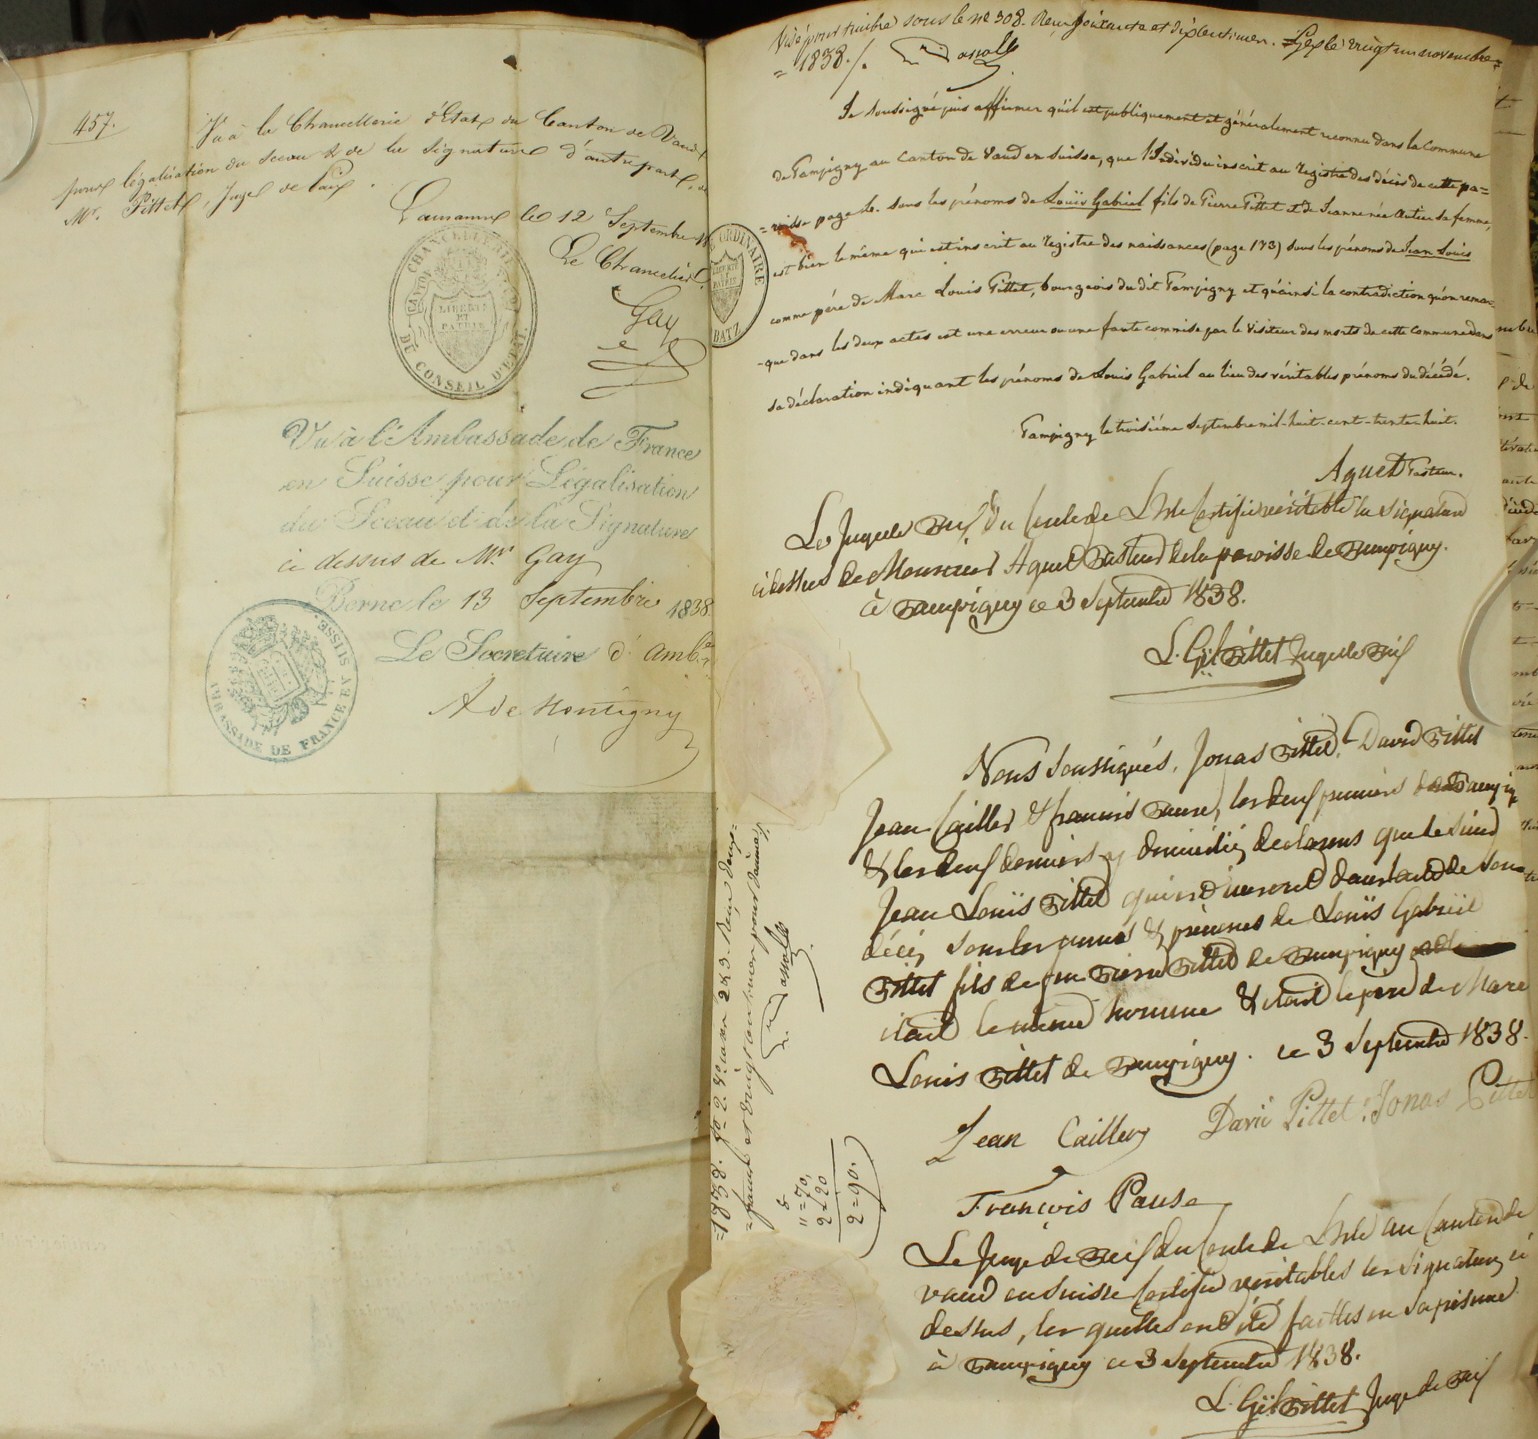 457.
Vu à la Chancellerie d'Etat du Canton de Vaud
pour légalisation du sceau & de la signature d'autre part, de
Mr. Pittet, Juge de Paix.
Lausanne le 12 Septembre
Le Chancelier,
Gay
CHANCELLERIE DU CONSEIL D'ETAT
CANTON DE
LIBERTE
ET
PATRIE
Vu à l'Ambassade de France
en Suisse pour Légalisation
du Sceau et de la Signature
ci dessus de Mr. Gay
Berne le 13 Septembre 1838
Le Secretaire d'amb.
A de Montigny
AMBASSADE DE FRANCE EN SUISSE.
Visé pour timbre sous le no 308. Reçu soixante et dix centimes. Gex le vingt un novembre =
= 1838./.
ORDINAIRE
Je soussigné puis affirmer qu'il est publiquement et généralement reconnu dans la Commune
de Pampigny au Canton de Vaud en Suisse, que l'Individu inscrit au registre des décès de cette pa=
=roisse page sous les prénoms de Louïs Gabriel fils de Pierre Pittet et de Jeanne née sa femme,
est bien le même qui est inscrit au registre des naissances (page 173) sous les prénoms de Jean Louis
comme père de Marc Louis Pittet, bourgeois du dit Pampigny et qu'ainsi la contradiction qu'on remar-
-que dans les deux actes est une erreur ou une faute commise par le Visiteur des morts de cette Commune dans
sa déclaration indiquant les prénoms de Louis Gabriel au lieu des véritables prénoms du décédé.
Pampigny le troisième Septembre mil-huit-cent-trente-huit.
Aguet Pasteur.
Le Juge de Paix du Cercle de L'Isle Certifie véritable la Signature
ci dessus de Monsieur Aguet Pasteur de la paroisse de Pampigny.
à Pampigny ce 3 Septembre 1838.
L. Gël Pittet Juge de Paix
Nous soussignés, Jonas Pittet, David Pittet
Jean Cailler & francois Pause, les deux premiers de Pampigny
& les deux derniers y domiciliés, declarons que le sieur
Jean Louïs Pittet qui est dans l'acte de son
décès sous les noms & prénoms de Louïs Gabriel
Pittet fils de feu Pierre Pittet de Pampigny
était le même homme & était le père de Marc
Louis Pittet de Pampigny. ce 3 Septembre 1838.
Jean Cailler David Pittet Jonas Pittet
François Pause
Le Juge de Paix du Cercle de L'Isle au Canton de
vaud en Suisse Certifie véritables les signatures ci
dessus, les quelles ont été faittes en sa présence
à Pampigny ce 3 Septembre 1838.
L. Gël Pittet Juge de Paix
=1838. fo 2. Vo. case 2 & 3. Reçu deux=
= francs et vingt centimes pour dixième.
"=70,
2 20
2=90.